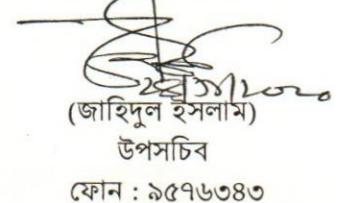 (জাহিদুল ইসলাম)
উপসচিব
ফোন : ৯৫৭৬৩৪৩